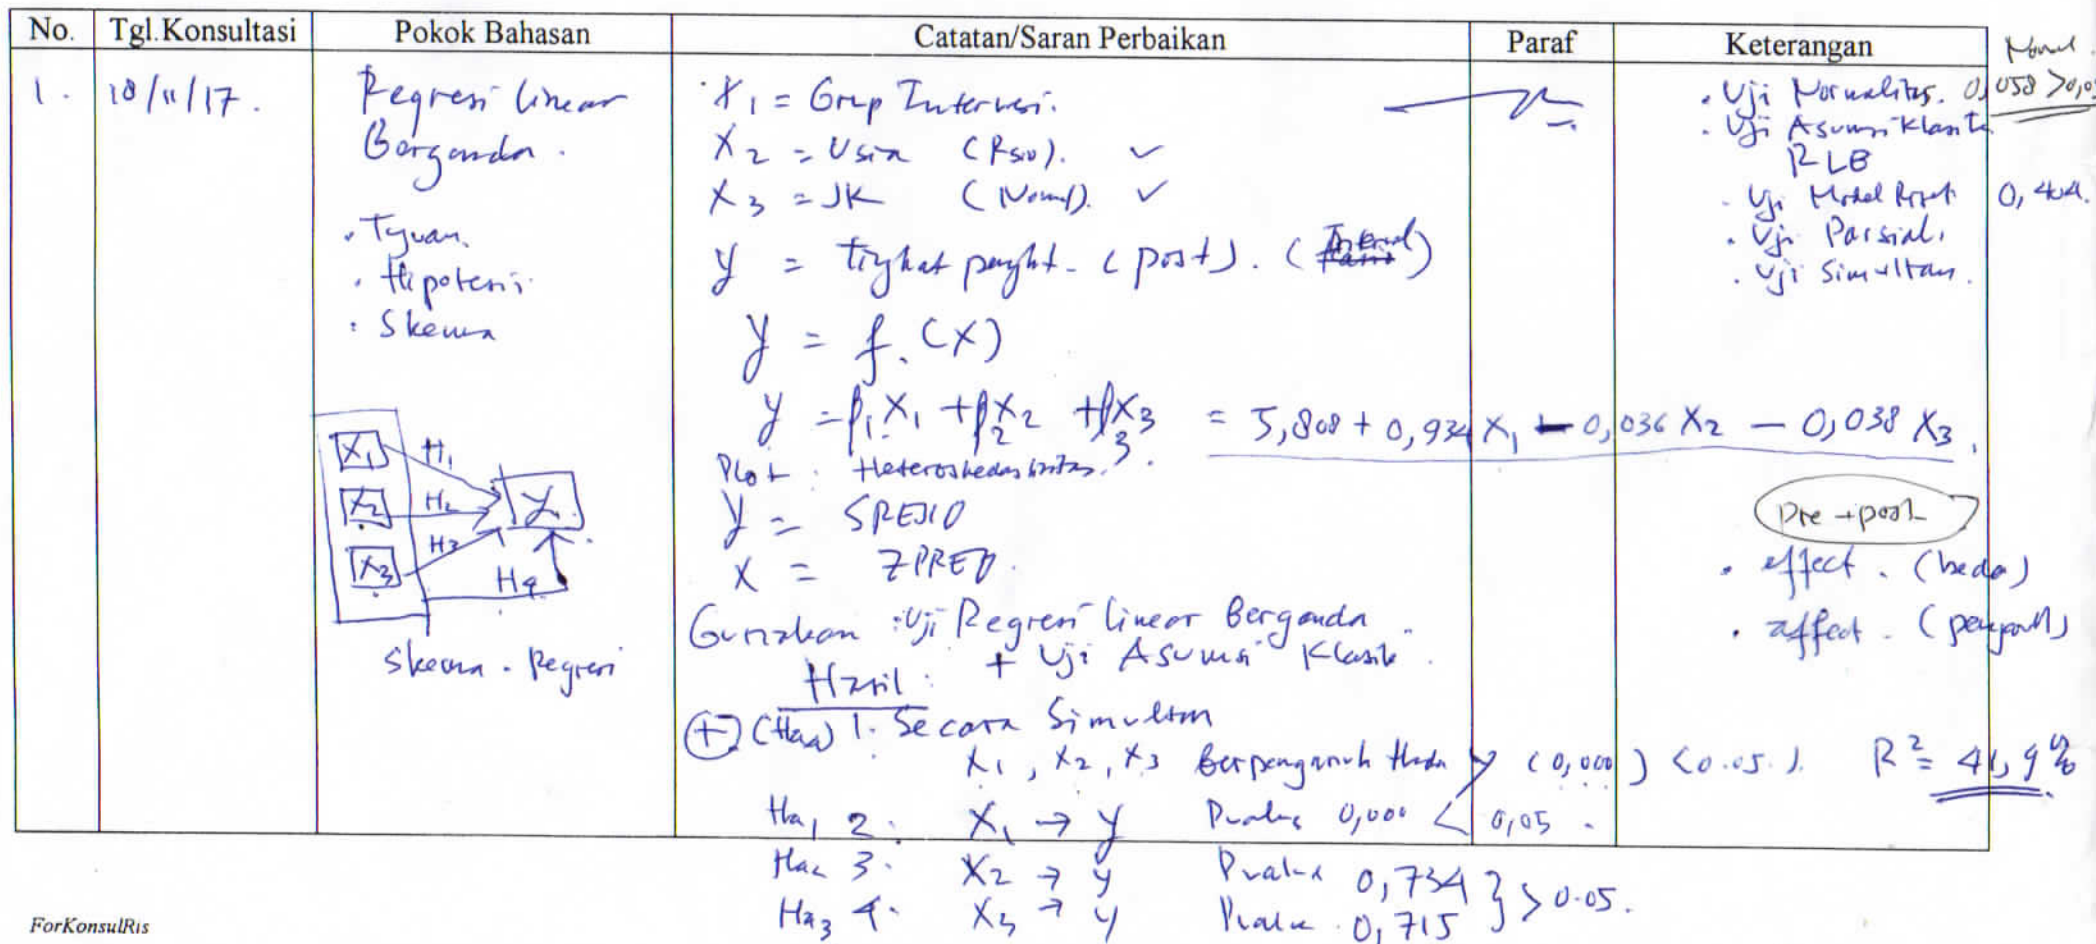 No. Tgl.Konsultasi Pokok Bahasan Catatan/Saran Perbaikan Paraf Keterangan
1. 18/11/17.
Regresi linear
Berganda.
• Tujuan.
• Hipotesis
• Skema
X1 H1
X2 H2 Y
X3 H3
H4
Skema . Regresi
X1 = Grup Intervensi.
X2 = Usia (Rsio). ✓
X3 = JK (Nominal). ✓
y = (post). (Interval)
y = f.(X)
y = β1X1 + β2X2 + β3X3 = 5,808 + 0,934 X1 - 0,036 X2 — 0,038 X3.
Plot : Heteroskedastisitas.
y = SRESID
X = ZPRED.
Gunakan : Uji Regresi linear Berganda.
+ Uji Asumsi Klasik.
Hasil :
+ 1. Secara Simultan
X1, X2, X3 Berpengaruh Y (0,000) < 0.05.). R² = 41,9%
Ha1 2. X1 → y Pvalue 0,000 < 0,05.
Ha2 3. X2 → y Pvalue 0,734 } > 0.05.
Ha3 4. X3 → y Pvalue. 0,715
• Uji Normalitas. 0,058 > 0,05
• Uji Asumsi Klasik
RLB
• Uji Model 0,404.
• Uji Parsial.
• Uji Simultan.
Pre - post
• effect. (beda)
• affect. (pengaruh)
ForKonsulRis